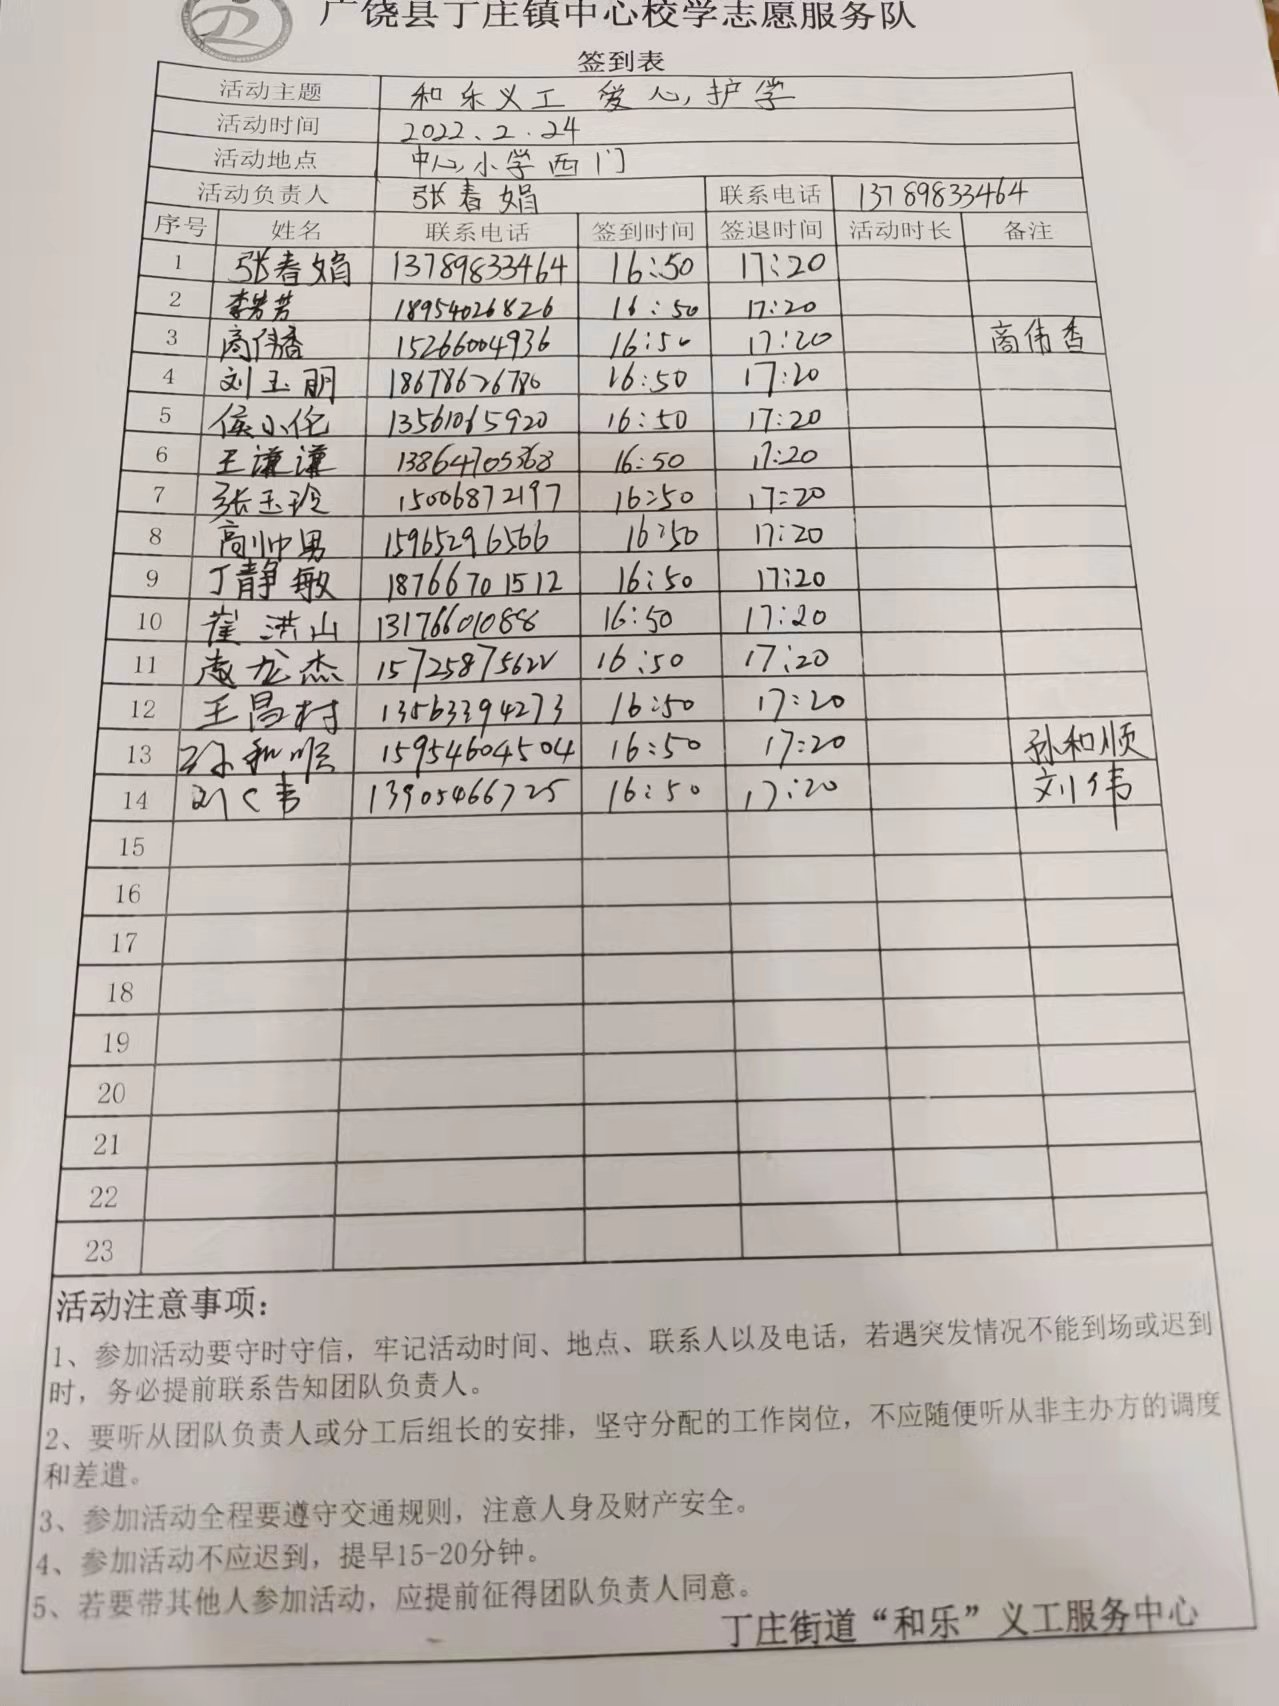 广饶县丁庄镇中心校学志愿服务队
签到表
活动主题 和乐义工 爱心护学
活动时间 2022.2.24
活动地点 中心小学西门
活动负责人 张春娟 联系电话 13789833464
序号 姓名 联系电话 签到时间 签退时间 活动时长 备注
1 张春娟 13789833464 16:50 17:20
2 李芳芳 18954026826 16:50 17:20
3 商伟香 15266004936 16:50 17:20 商伟香
4 刘玉朋 18678626780 16:50 17:20
5 侯小伦 13561065920 16:50 17:20
6 王谦谦 13864705368 16:50 17:20
7 张玉玲 15006872197 16:50 17:20
8 高帅男 15965296566 16:50 17:20
9 丁静敏 18766701512 16:50 17:20
10 崔洪山 13176601088 16:50 17:20
11 龙杰 16:50 17:20
12 王昌村 13563394273 16:50 17:20
13 孙和顺 15954604504 16:50 17:20 孙和顺
14 刘伟 13905466725 16:50 17:20 刘伟
15
16
17
18
19
20
21
22
23
活动注意事项：
1、参加活动要守时守信，牢记活动时间、地点、联系人以及电话，若遇突发情况不能到场或迟到
时，务必提前联系告知团队负责人。
2、要听从团队负责人或分工后组长的安排，坚守分配的工作岗位，不应随便听从非主办方的调度
和差遣。
3、参加活动全程要遵守交通规则，注意人身及财产安全。
4、参加活动不应迟到，提早15-20分钟。
5、若要带其他人参加活动，应提前征得团队负责人同意。
丁庄街道“和乐”义工服务中心